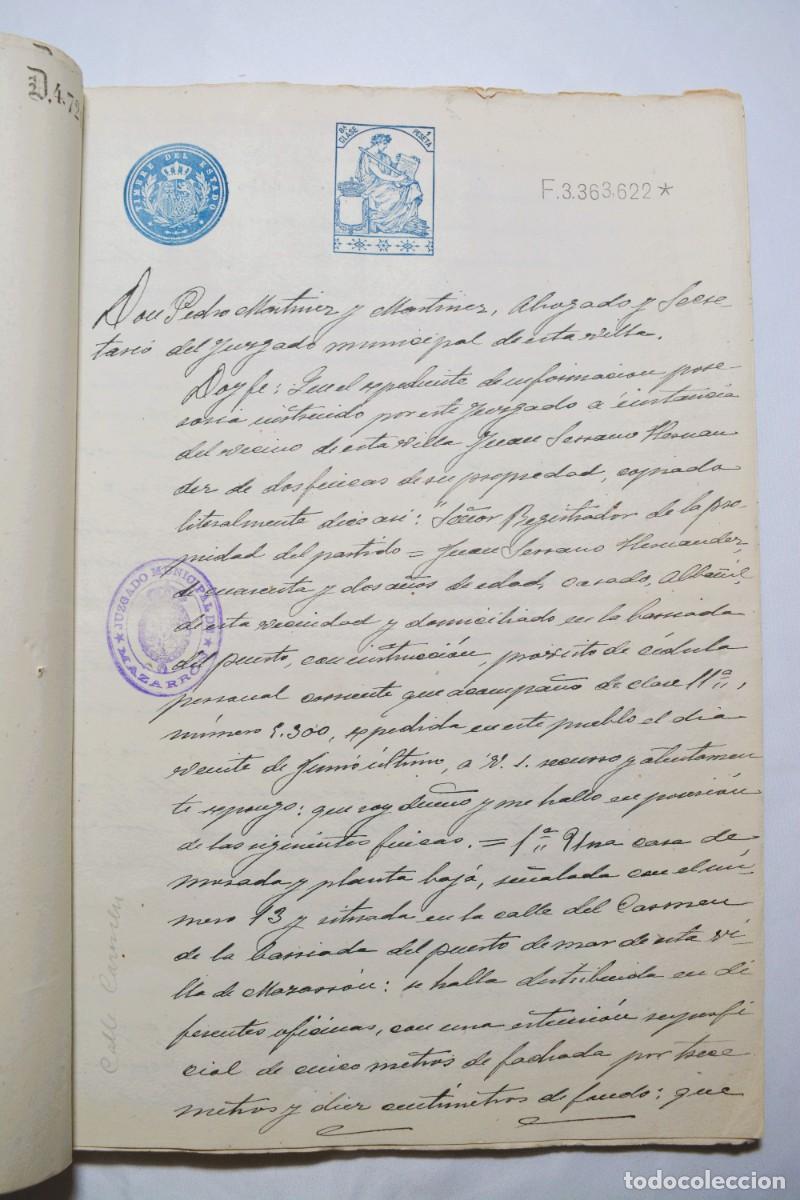 D.4.72
TIMBRE DEL ESTADO
8A CLASE 1 PESETA
F.3.363.622*
Don Pedro Martinez y Martinez, Abogado y Secre-
tario del Juzgado municipal de esta villa.
Doy fe: Que el expediente de informacion pose-
soria instruido por este Juzgado a instancia
del vecino de esta villa Juan Serrano Hernan
dez de dos fincas de su propiedad, copiado
literalmente dice asi: "Señor Registrador de la pro-
piedad del partido = Juan Serrano Hernandez,
de cuarenta y dos años de edad, casado, Albañil,
de esta vecindad y domiciliado en la barriada
del puerto, con instrucción, provisto de cédula
personal corriente que acompaño de clase 11ª,
número 5.300, expedida en este pueblo el dia
veinte de Junio último, a V. S. recurro y atentamen
te expongo: que soy dueño y me hallo en posesión
de las siguientes fincas. = 1ª Una casa de
morada y planta bajá, señalada con el nú-
mero 13 y situada en la calle del Carmen
de la barriada del puerto de mar de esta vi-
lla de Mazarrón: se halla distribuida en di
ferentes oficinas, con una extensión superfi
cial de cinco metros de fachada por trece
metros y diez centímetros de fondo: que
JUZGADO MUNICIPAL DE
MAZARRON
Calle Carmen
todocoleccion